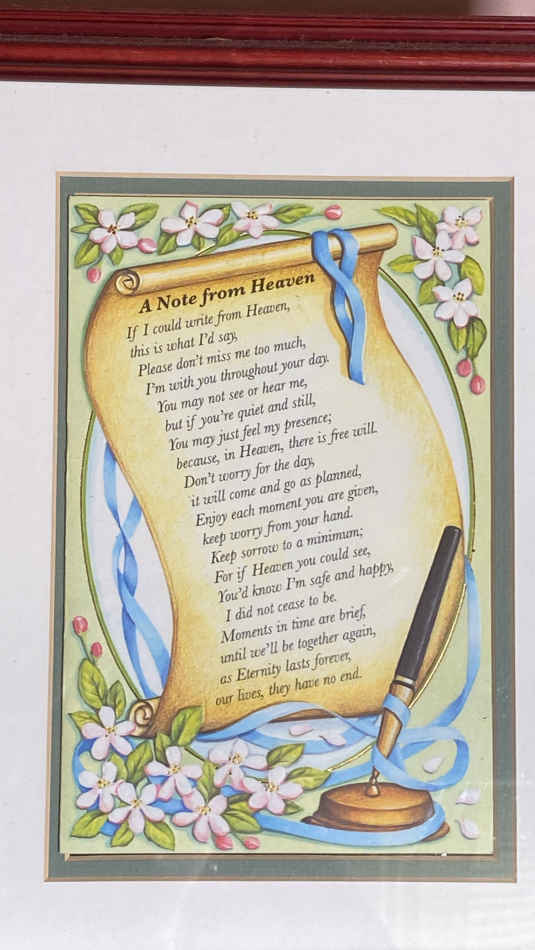 A Note from Heaven
If I could write from Heaven,
this is what I'd say,
Please don't miss me too much,
I'm with you throughout your day.
You may not see or hear me,
but if you're quiet and still,
You may just feel my presence;
because, in Heaven, there is free will.
Don't worry for the day,
it will come and go as planned,
Enjoy each moment you are given,
keep worry from your hand.
Keep sorrow to a minimum;
For if Heaven you could see,
You'd know I'm safe and happy,
I did not cease to be.
Moments in time are brief,
until we'll be together again,
as Eternity lasts forever,
our lives, they have no end.